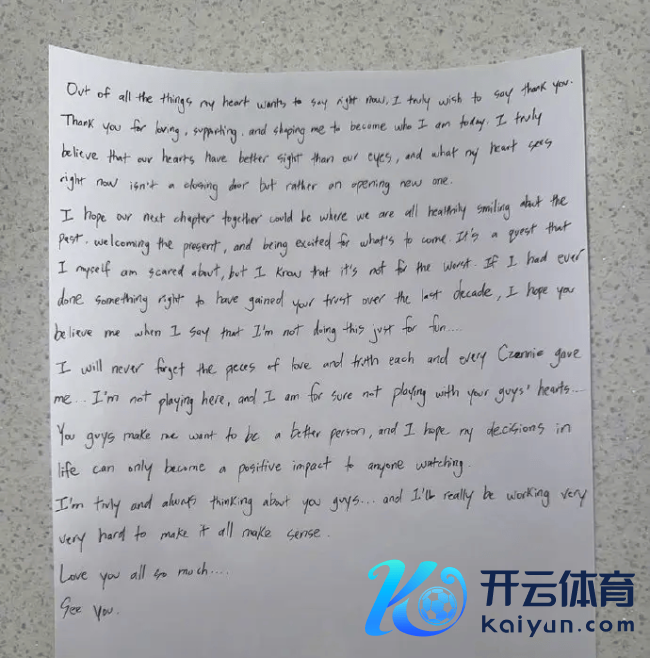 Out of all the things my heart wants to say right now, I truly wish to say thank you.
Thank you for loving, supporting, and shaping me to become who I am today. I truly
believe that our hearts have better sight than our eyes, and what my heart sees
right now isn't a closing door but rather an opening new one.
I hope our next chapter together could be where we are all healthily smiling about the
past, welcoming the present, and being excited for what's to come. It's a quest that
I myself am scared about, but I know that it's not for the worst. If I had ever
done something right to have gained your trust over the last decade, I hope you
believe me when I say that I'm not doing this just for fun....
I will never forget the pieces of love and truth each and every Czennie gave
me... I'm not playing here, and I am for sure not playing with your guys' hearts...
You guys make me want to be a better person, and I hope my decisions in
life can only become a positive impact to anyone watching.
I'm truly and always thinking about you guys... and I'll really be working very
very hard to make it all make sense.
Love you all so much....
See you.
开云体育
kaiyun.com